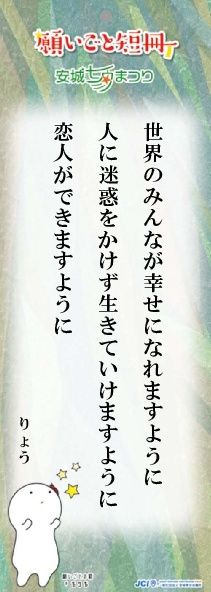 願いごと短冊
安城七夕まつり
世界のみんなが幸せになれますように
人に迷惑をかけず生きていけますように
恋人ができますように
りょう
JCI